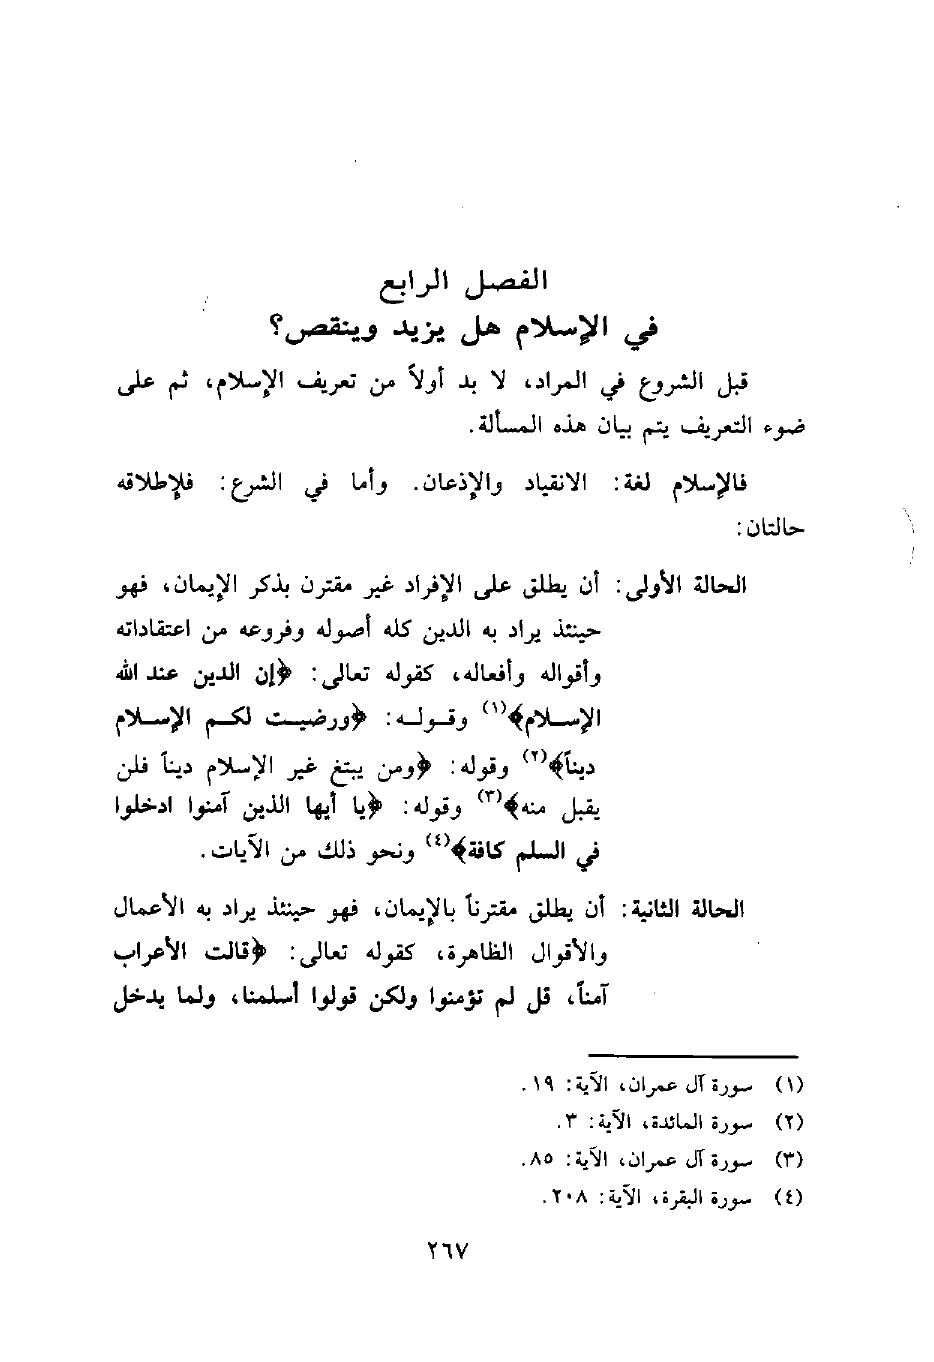 الفصل الرابع
في الإسلام هل يزيد وينقص؟
قبل الشروع في المراد، لا بد أولاً من تعريف الإسلام، ثم على
ضوء التعريف يتم بيان هذه المسألة.
فالإسلام لغة: الانقياد والإذعان. وأما في الشرع: فلإطلاقه
حالتان:
الحالة الأولى: أن يطلق على الإفراد غير مقترن بذكر الإيمان، فهو
حينئذ يراد به الدين كله أصوله وفروعه من اعتقاداته
وأقواله وأفعاله، كقوله تعالى: ﴿إن الدين عند الله
الإسلام﴾(١) وقوله: ﴿ورضيت لكم الإسلام
ديناً﴾(٢) وقوله: ﴿ومن يبتغ غير الإسلام ديناً فلن
يقبل منه﴾(٣) وقوله: ﴿يا أيها الذين آمنوا ادخلوا
في السلم كافة﴾(٤) ونحو ذلك من الآيات.
الحالة الثانية: أن يطلق مقترناً بالإيمان، فهو حينئذ يراد به الأعمال
والأقوال الظاهرة، كقوله تعالى: ﴿قالت الأعراب
آمناً، قل لم تؤمنوا ولكن قولوا أسلمنا، ولما يدخل
(١) سورة آل عمران، الآية: ١٩.
(٢) سورة المائدة، الآية: ٣.
(٣) سورة آل عمران، الآية: ٨٥.
(٤) سورة البقرة، الآية: ٢٠٨.
٢٦٧